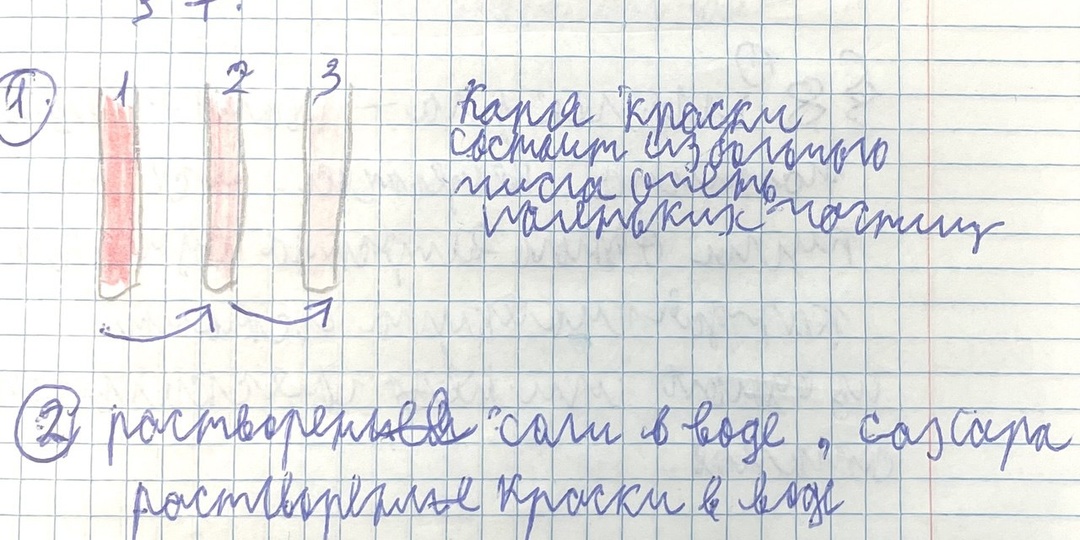 1.
1 2 3
Капля краски
состоит из большого
числа очень
маленьких частиц
2) растворение соли в воде, сахара
растворение краски в воде